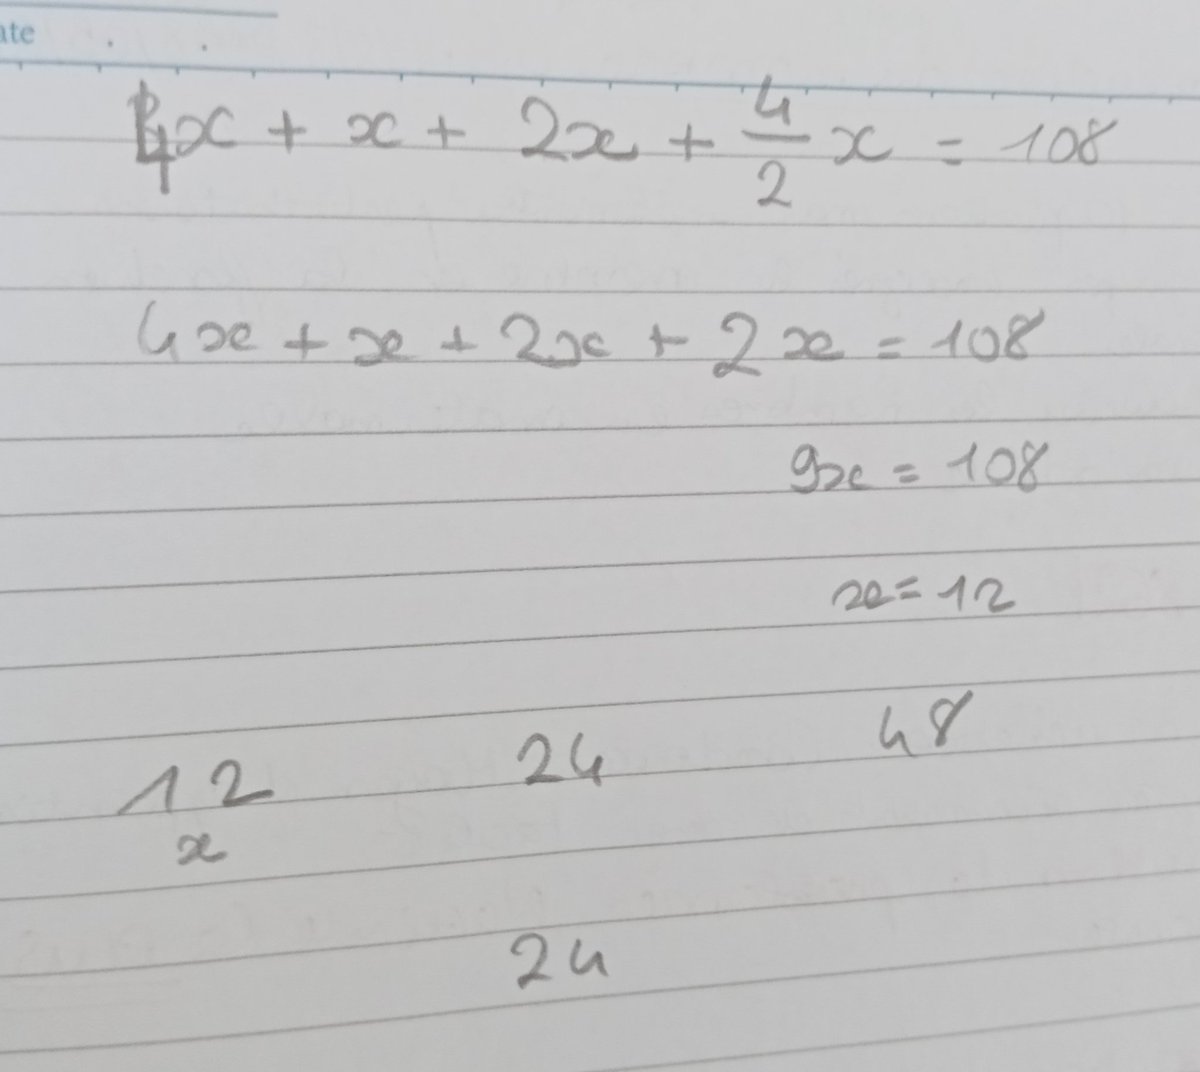 ate
4x + x + 2x + 4/2 x = 108
4x + x + 2x + 2x = 108
9x = 108
x = 12
12 24 48
x
24